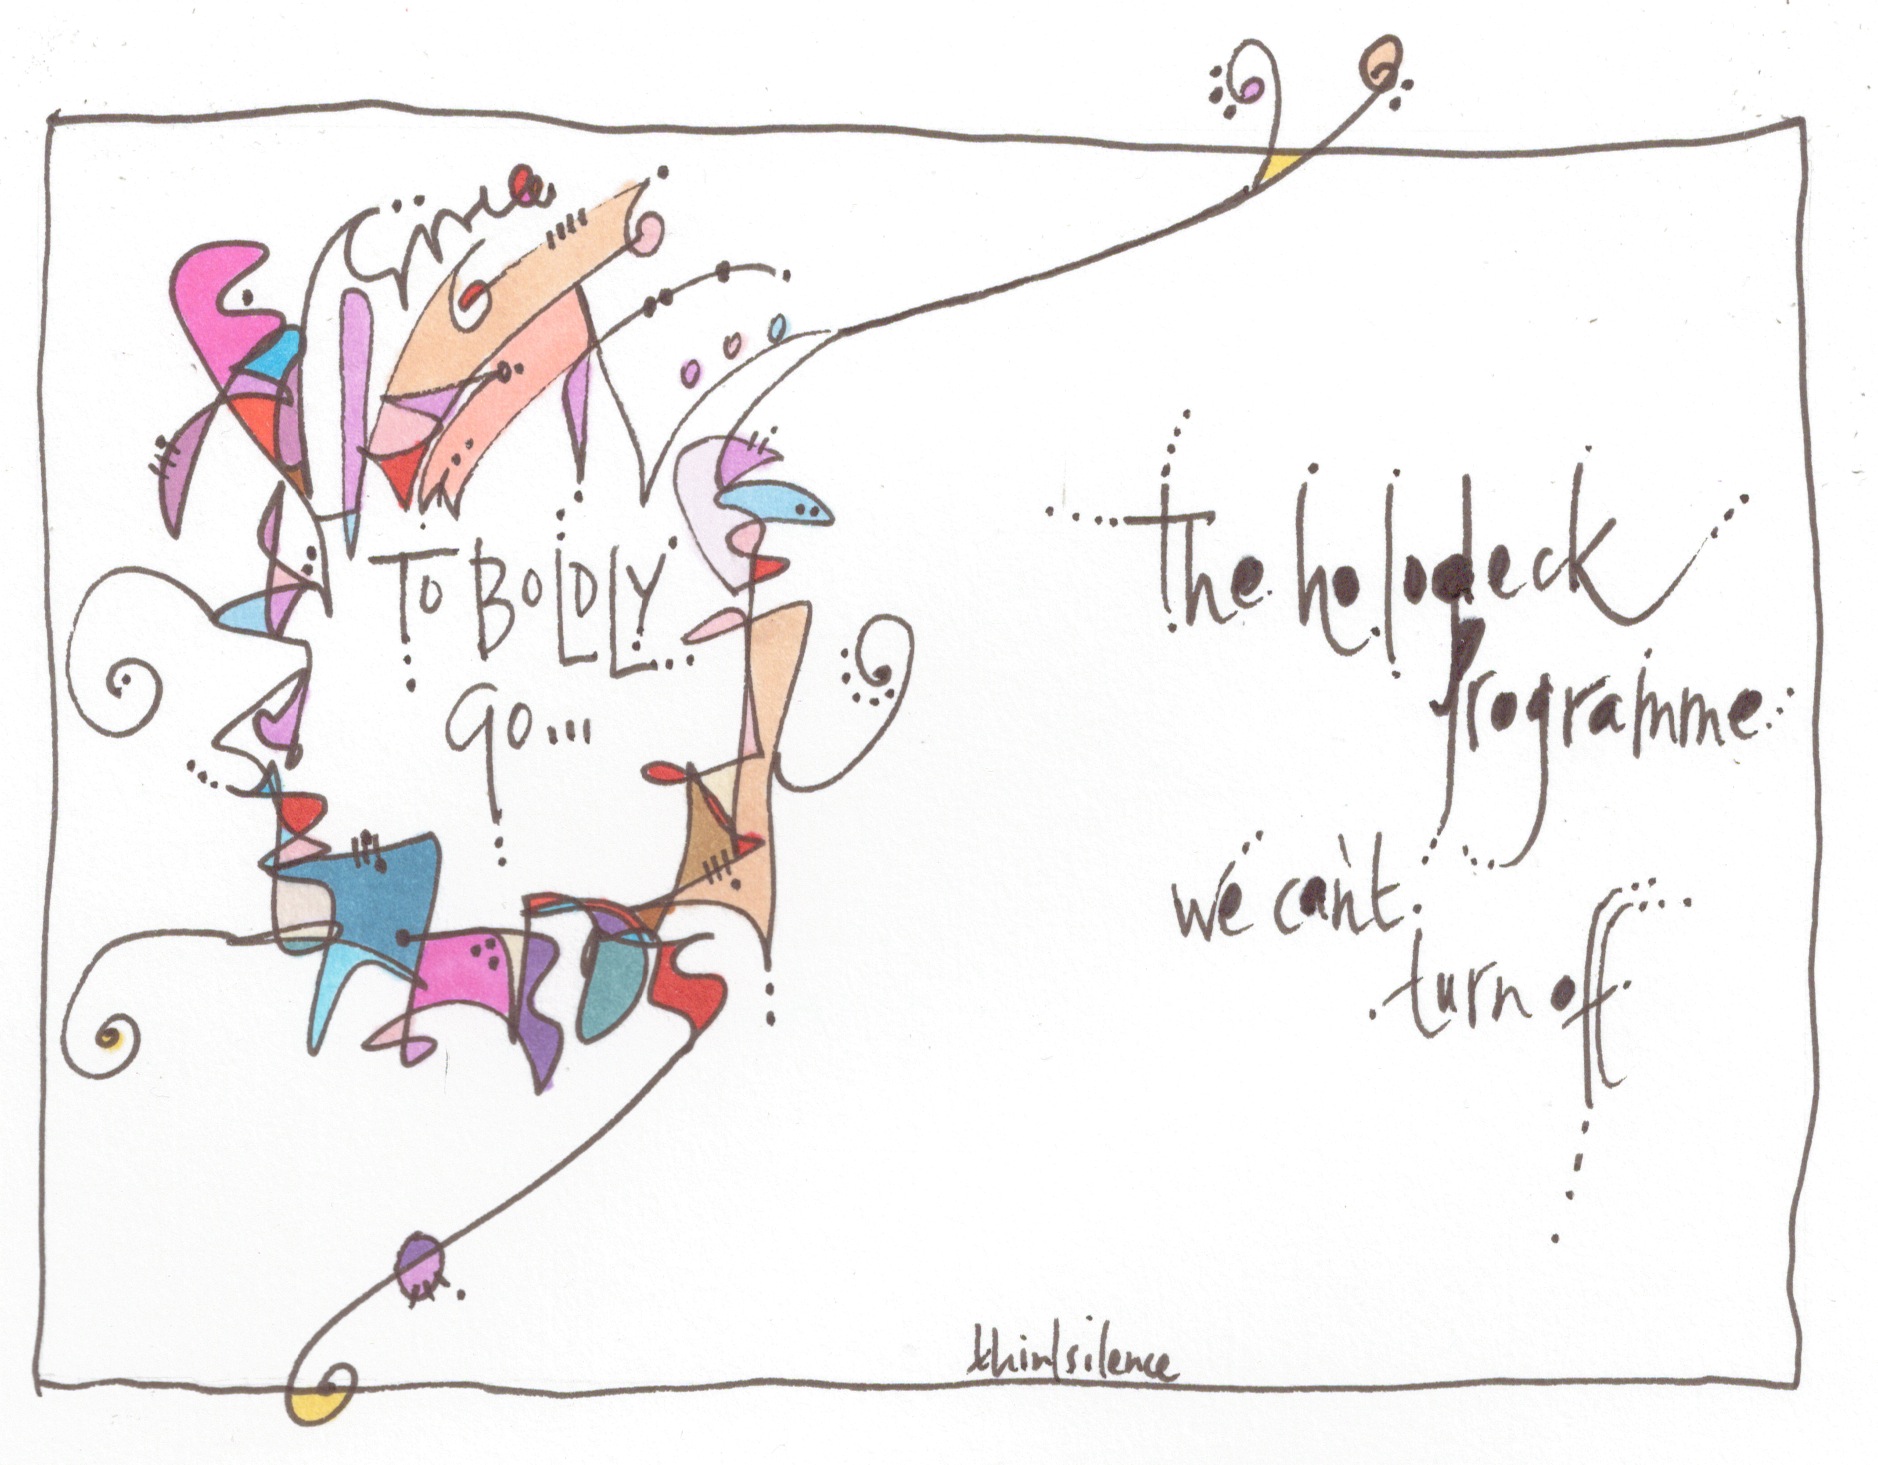 TO BOLDLY
GO...
The holodeck
Programme
we can't
turn off